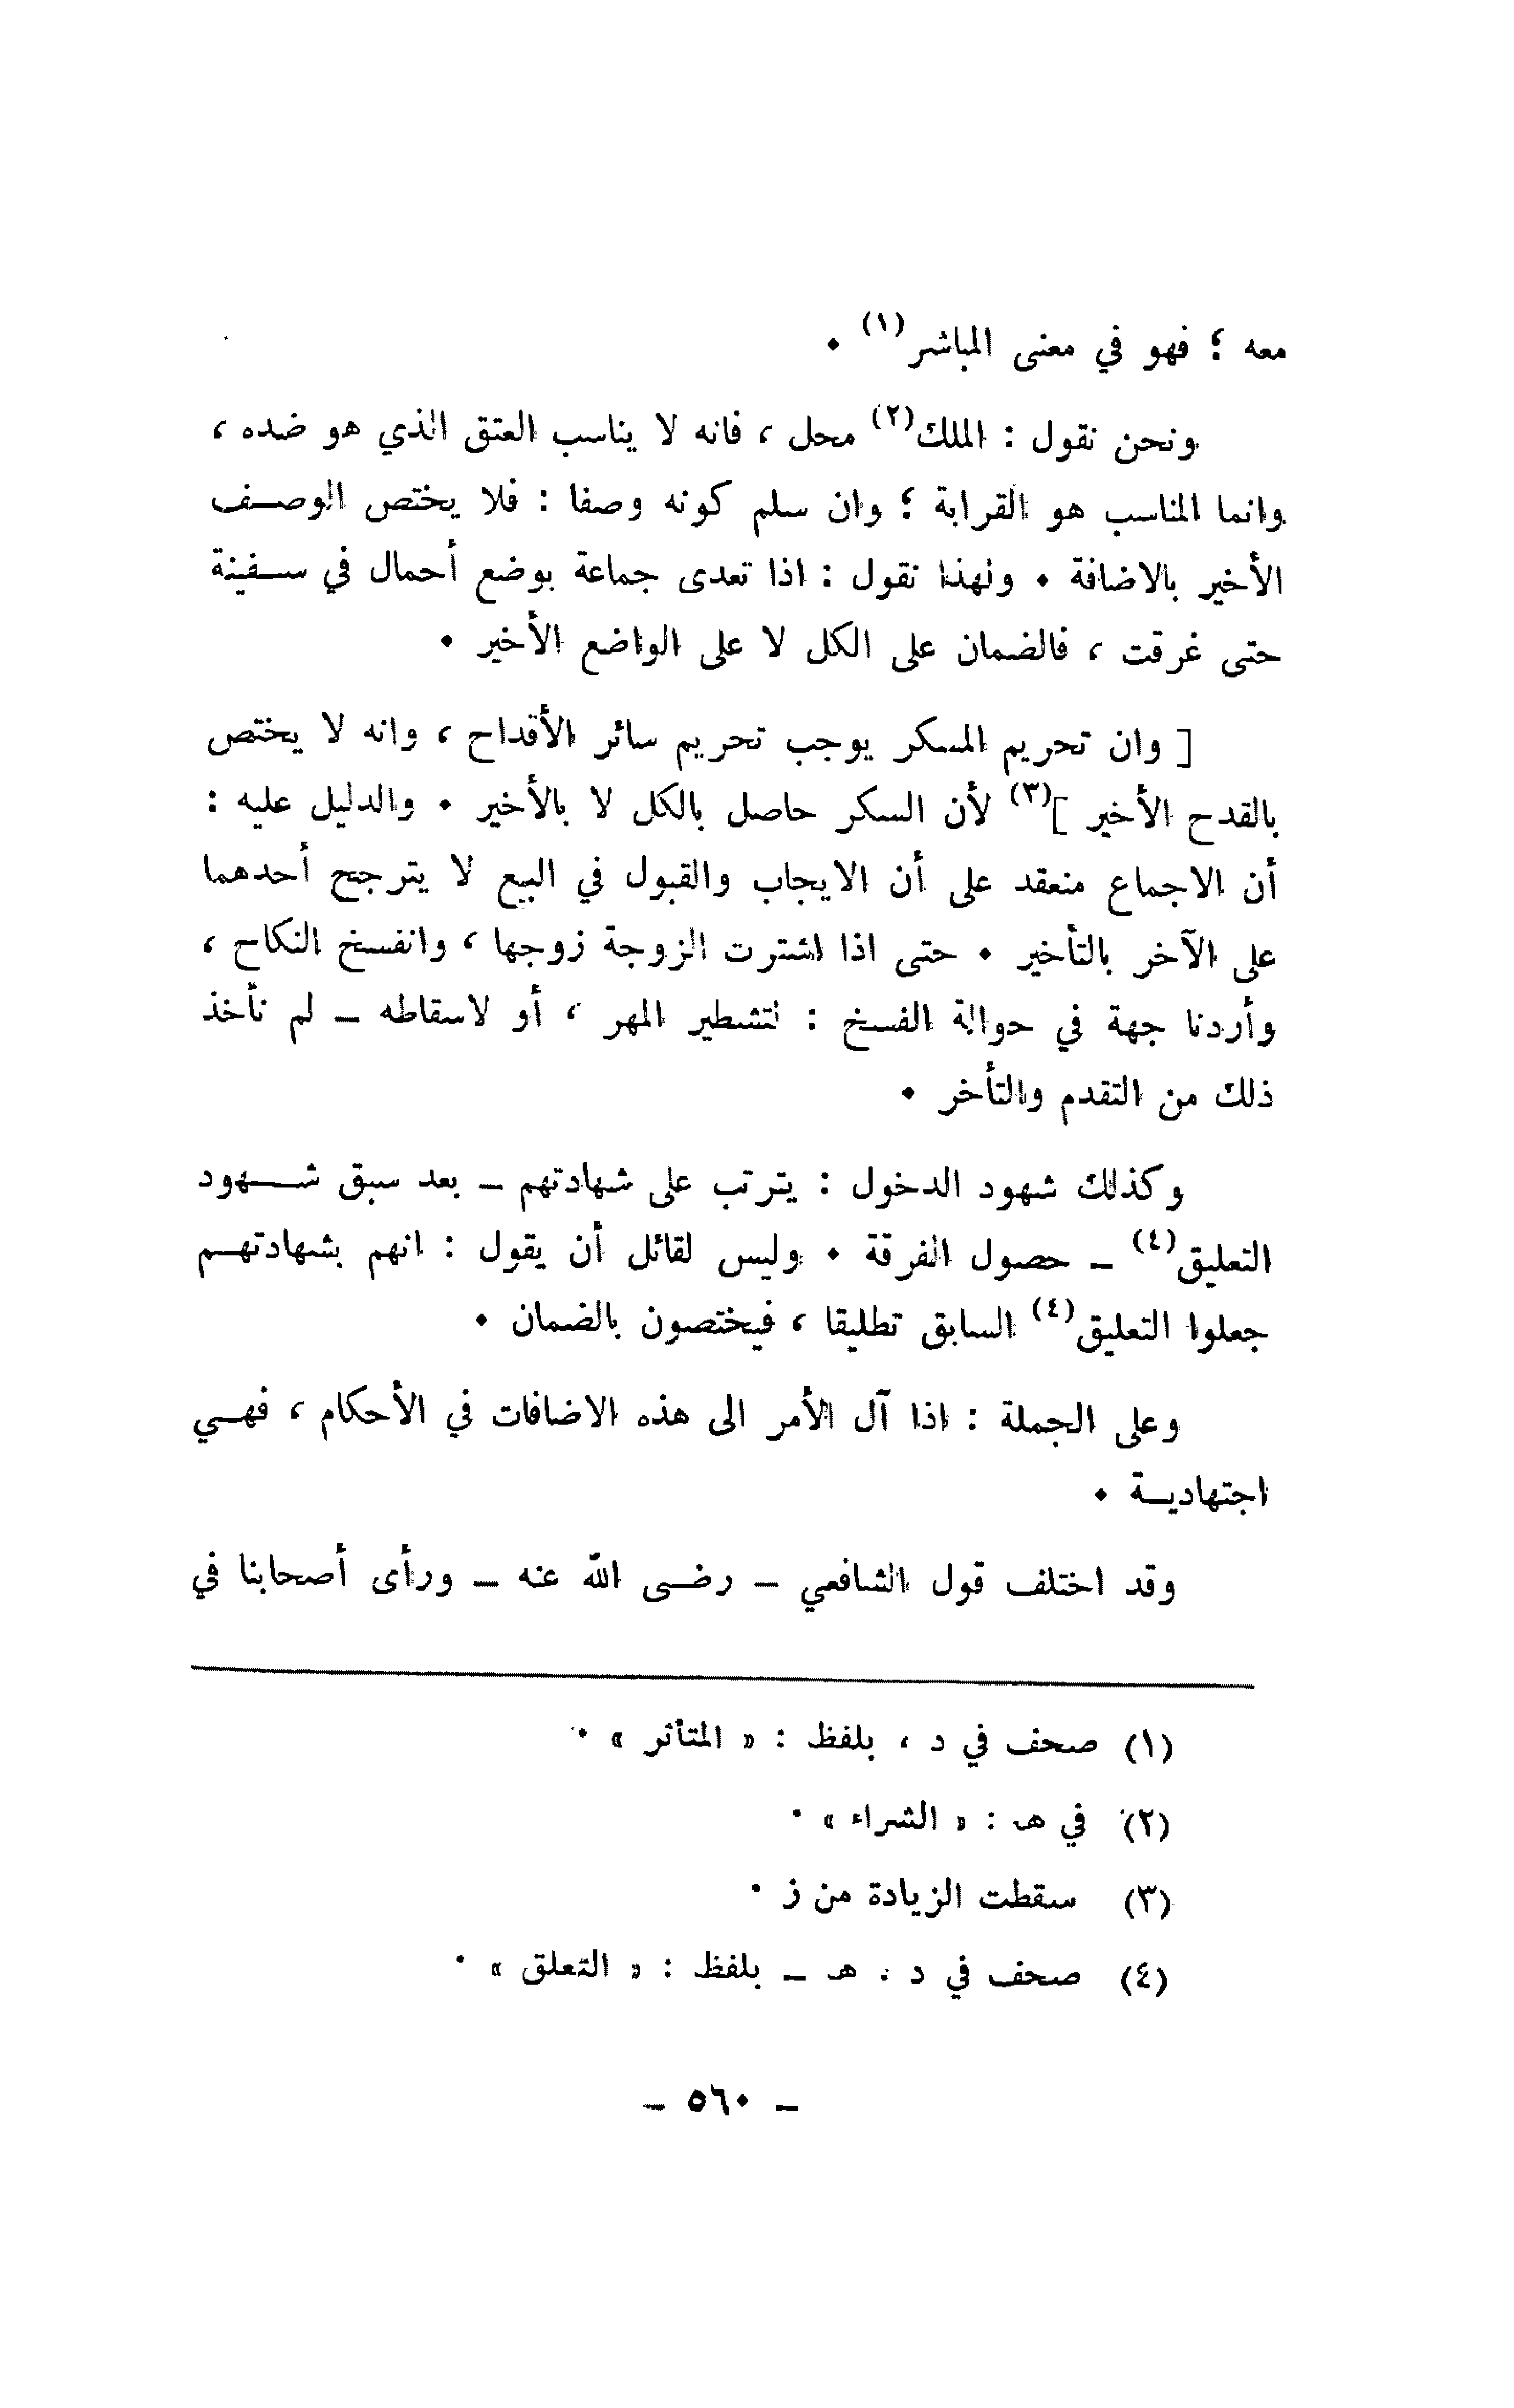 معه ؛ فهو في معنى المباشر(١) .
ونحن نقول : الملك(٢) محل ، فانه لا يناسب العتق الذي هو ضده ،
وانما المناسب هو القرابة ؛ وان سلم كونه وصفا : فلا يختص الوصف
الأخير بالاضافة . ولهذا نقول : اذا تعدى جماعة بوضع أحمال في سفينة
حتى غرقت ، فالضمان على الكل لا على الواضع الأخير .
[ وان تحريم المسكر يوجب تحريم سائر الأقداح ، وانه لا يختص
بالقدح الأخير ](٣) لأن السكر حاصل بالكل لا بالأخير . والدليل عليه :
أن الاجماع منعقد على أن الايجاب والقبول في البيع لا يترجح أحدهما
على الآخر بالتأخير . حتى اذا اشترت الزوجة زوجها ، وانفسخ النكاح ،
وأردنا جهة في حوالة الفسخ : لتشطير المهر ، أو لاسقاطه – لم نأخذ
ذلك من التقدم والتأخر .
وكذلك شهود الدخول : يترتب على شهادتهم – بعد سبق شهود
التعليق(٤) – حصول الفرقة . وليس لقائل أن يقول : انهم بشهادتهم
جعلوا التعليق(٤) السابق تطليقا ، فيختصون بالضمان .
وعلى الجملة : اذا آل الأمر الى هذه الاضافات في الأحكام ، فهي
اجتهادية .
وقد اختلف قول الشافعي – رضى الله عنه – ورأى أصحابنا في
(١) صحف في د ، بلفظ : « المتأثر » .
(٢) في هـ : « الشراء » .
(٣) سقطت الزيادة من ز .
(٤) صحف في د ، هـ – بلفظ : « التعلق » .
– ٥٦٠ –